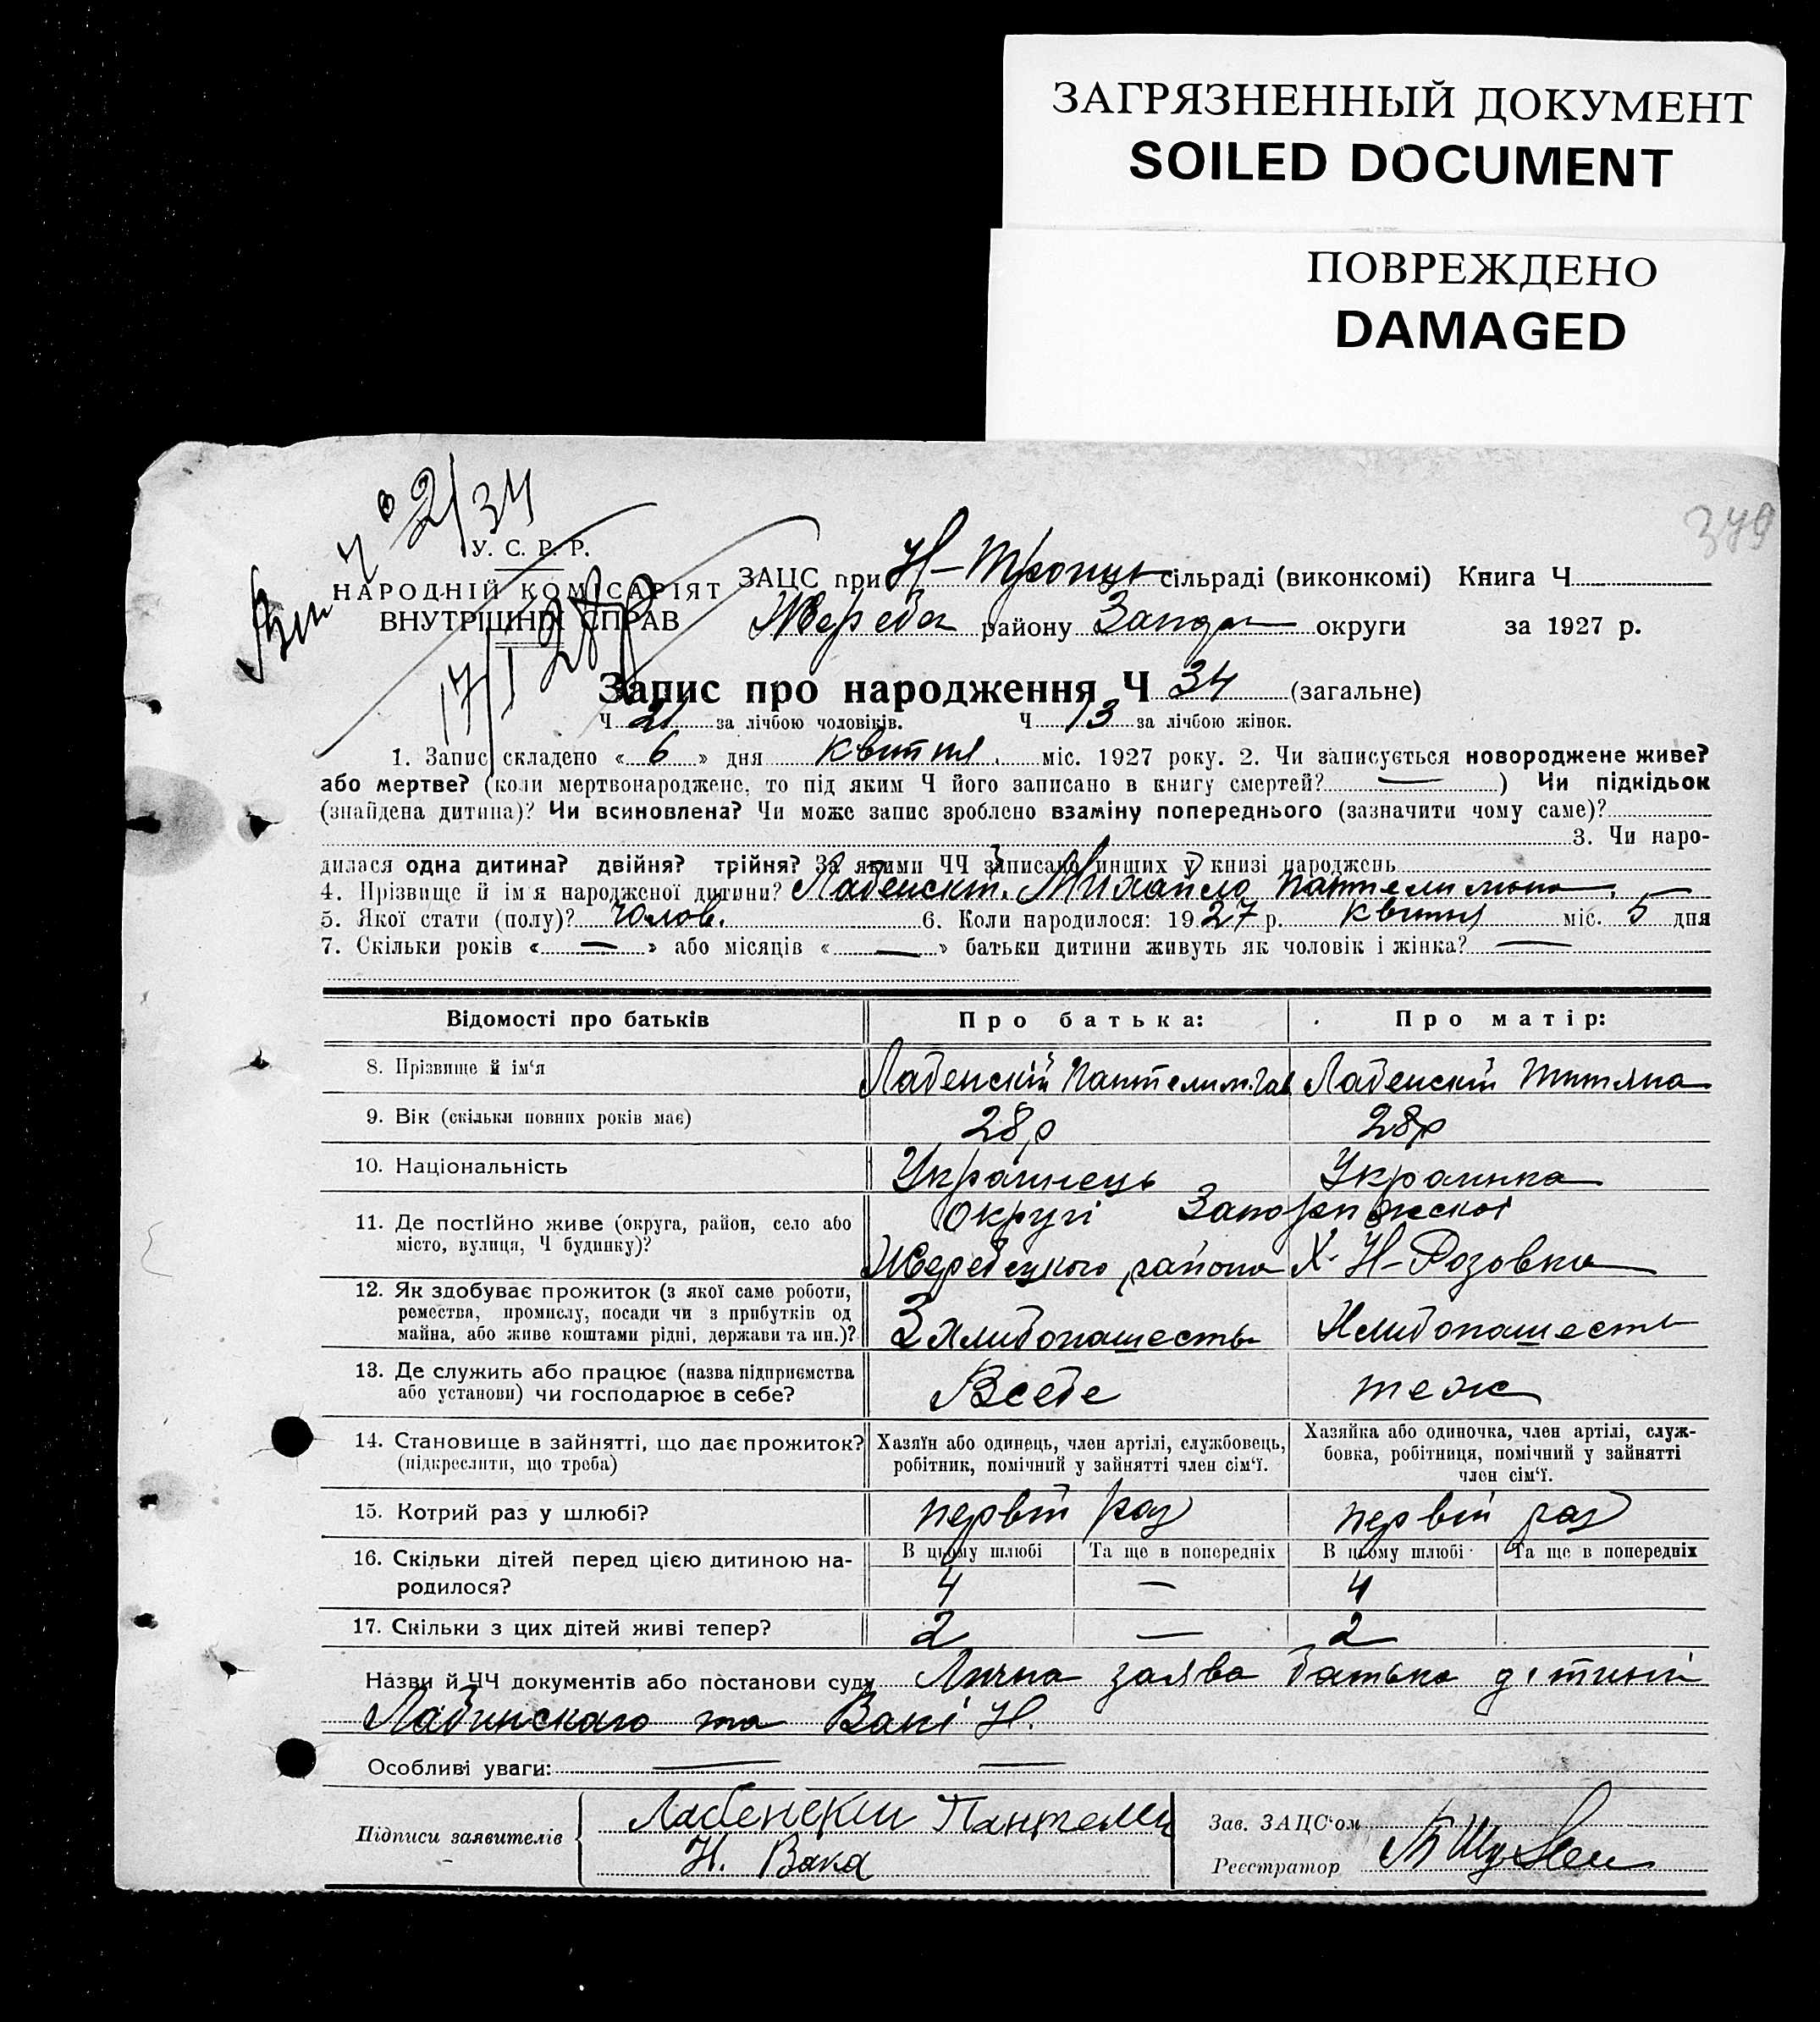 ЗАГРЯЗНЕННЫЙ ДОКУМЕНТ
SOILED DOCUMENT
ПОВРЕЖДЕНО
DAMAGED
379
2/34
У. С. Р. Р.
НАРОДНІЙ КОМІСАРІЯТ
ВНУТРІШНІХ СПРАВ
17/I 28
ЗАЦС при Н-Троицк сільраді (виконкомі) Книга Ч
Жереб району Запор округи за 1927 р.
Запис про народження Ч 34 (загальне)
Ч 21 за лічбою чоловіків. Ч 13 за лічбою жінок.
1. Запис складено « 6 » дня квитня міс. 1927 року. 2. Чи записується новороджене живе?
або мертве? (коли мертвонароджене, то під яким Ч його записано в книгу смертей? — ) Чи підкідьок
(знайдена дитина)? Чи всиновлена? Чи може запис зроблено взаміну попереднього (зазначити чому саме)?
3. Чи наро-
дилася одна дитина? двійня? трійня? За якими ЧЧ записано инших у книзі народжень
4. Прізвище й ім'я народженої дитини? Лабенский Михайло Пантелимоно
5. Якої стати (полу)? чолов. 6. Коли народилося: 1927 р. квитня міс. 5 дня
7. Скільки років « — » або місяців « — » батьки дитини живуть як чоловік і жінка? —
Відомості про батьків Про батька: Про матір:
8. Прізвище й ім'я Лабенский Пантелим. Гав Лабенский Титяна
9. Вік (скільки повних років має) 28 р 28 р
10. Національність Украинець Украинка
11. Де постійно живе (округа, район, село або Округи Запорижскоі
місто, вулиця, Ч будинку)? Жеребецкого района Х. Н-Розовка
12. Як здобуває прожиток (з якої саме роботи,
ремества, промислу, посади чи з прибутків од
майна, або живе коштами рідні, держави та ин.)? З Хлибопашесть Хлибопашесть
13. Де служить або працює (назва підприємства
або установи) чи господарює в себе? Всебе теж
14. Становище в зайнятті, що дає прожиток? Хазяїн або одинець, член артілі, службовець, Хазяйка або одиночка, член артілі, служ-
(підкреслити, що треба) робітник, помічний у зайнятті член сім'ї. бовка, робітниця, помічний у зайнятті
член сім'ї.
15. Котрий раз у шлюбі? первий раз первий раз
16. Скільки дітей перед цією дитиною на- В цьому шлюбі Та ще в попередніх В цьому шлюбі Та ще в попередніх
родилося? 4 — 4
17. Скільки з цих дітей живі тепер? 2 — 2
Назви й ЧЧ документів або постанови суду Лична заява батька дітині
Лабинскаго та Вакі Н.
Особливі уваги: — —
Підписи заявителів Лабенский Пантелей
Н. Вака
Зав. ЗАЦС'ом
Реєстратор